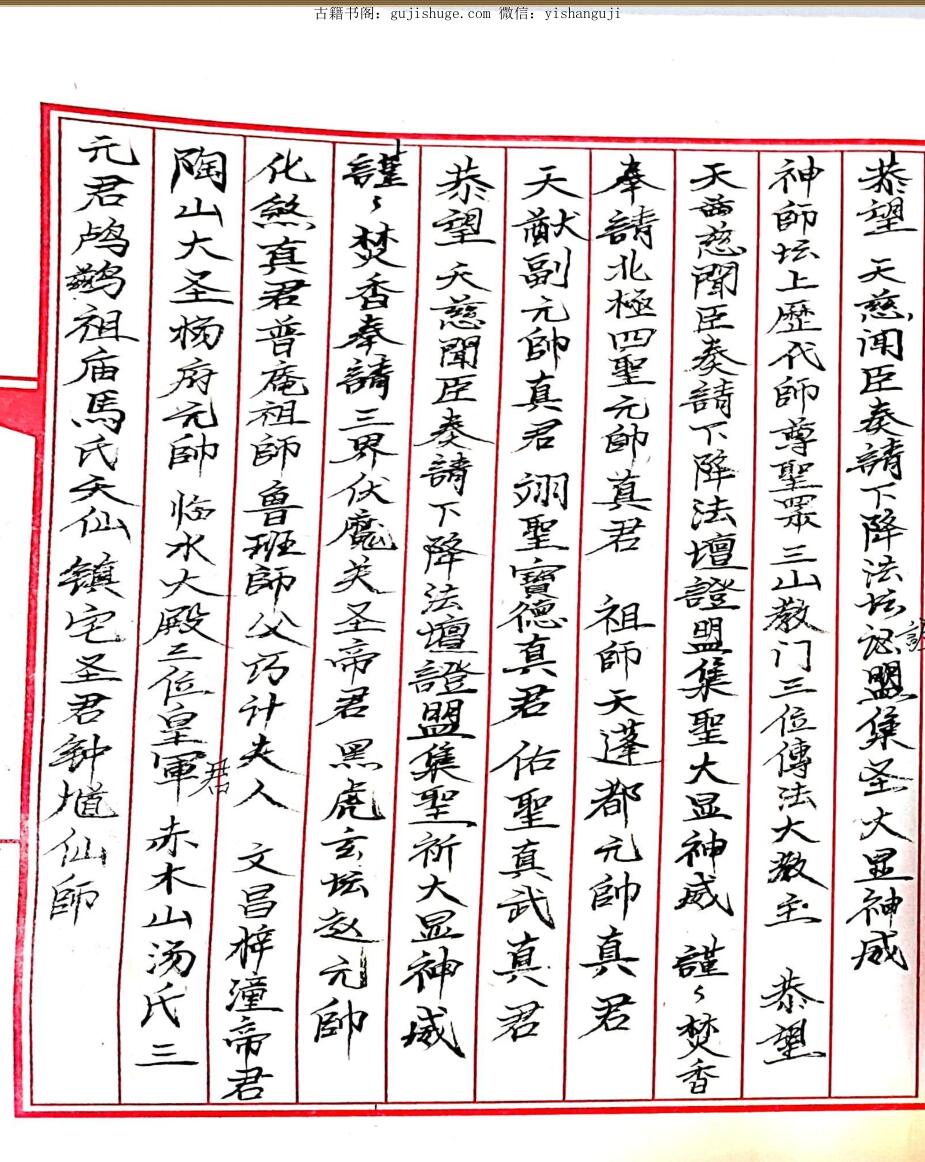 古籍书阁：gujishuge.com 微信：yishanguji
恭望 天慈闻臣奏請下降法坛证盟集圣大显神威
證
神師坛上歷代師尊聖眾三山教门三位傳法大教主 恭望
天慈聞臣奏請下降法壇證盟集聖大显神威 謹々焚香
奉請北極四聖元帥真君 祖師天蓬都元帥真君
天猷副元帥真君 翊聖寶德真君 佑聖真武真君
恭望 天慈聞臣奏請下降法壇證盟集聖祈大显神威
謹々焚香奉請三界伏魔关圣帝君 黑虎玄坛赵元帥
化煞真君普庵祖師魯班師父巧计夫人 文昌梓潼帝君
陶山大圣杨府元帥 临水大殿三位皇軍 赤木山汤氏三
君
元君鸬鹚祖庙馬氏天仙 镇宅圣君鈡馗仙師